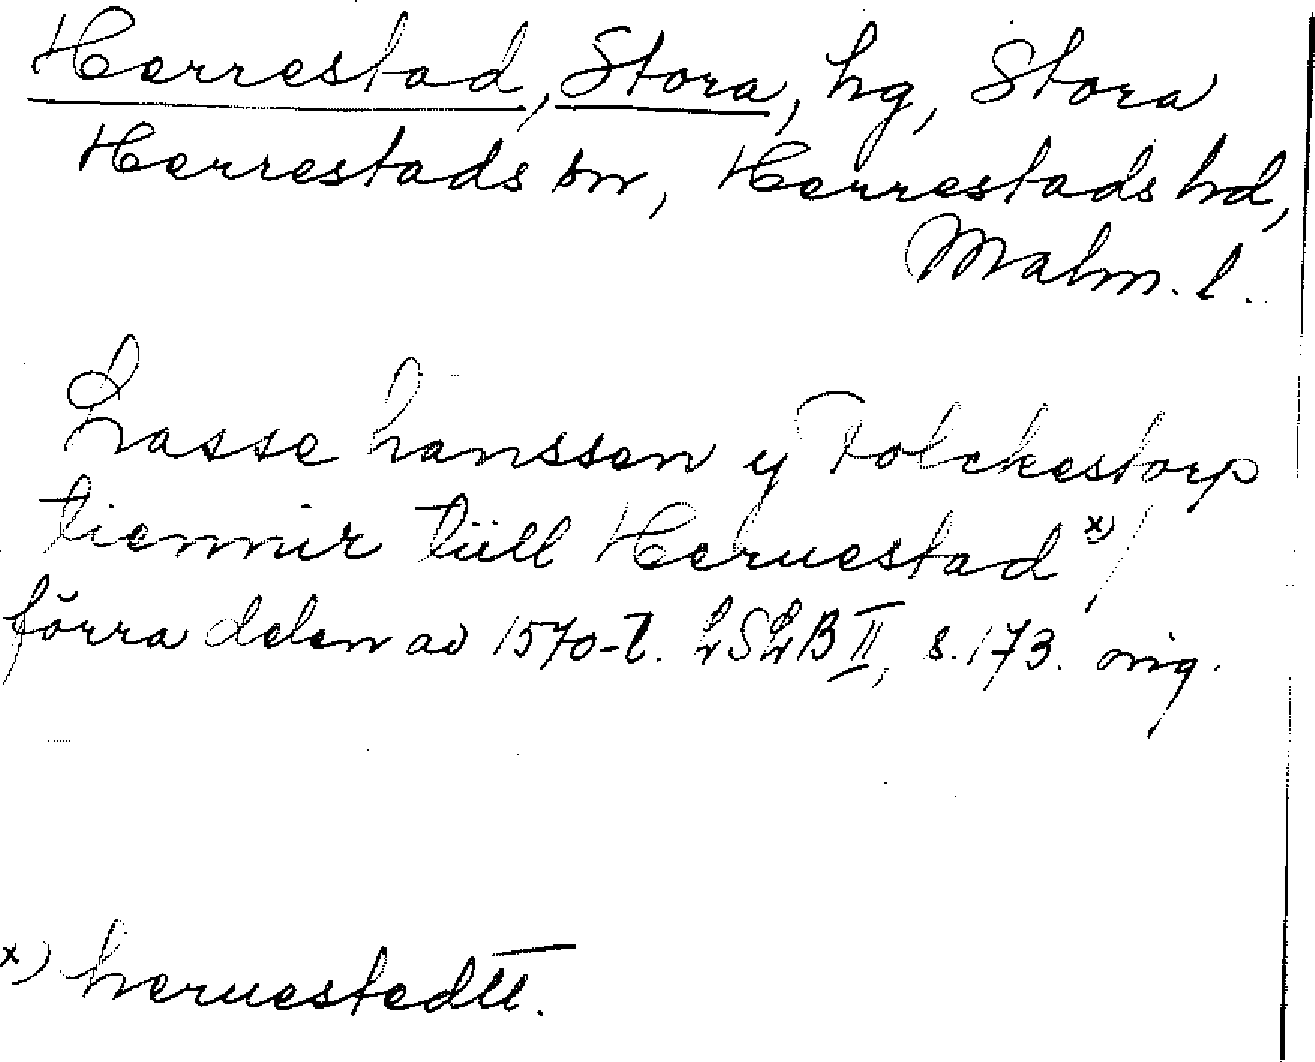 Herrestad, Stora, hg, Stora
Herrestads sn, Herrestads hd,
Malm. l.
Lasse hanssen y Folckestorp
tiennir tiill Heruestad x) /
förra delen av 1570-t. LSLB II, s. 173. orig.
x) heruestedtt.